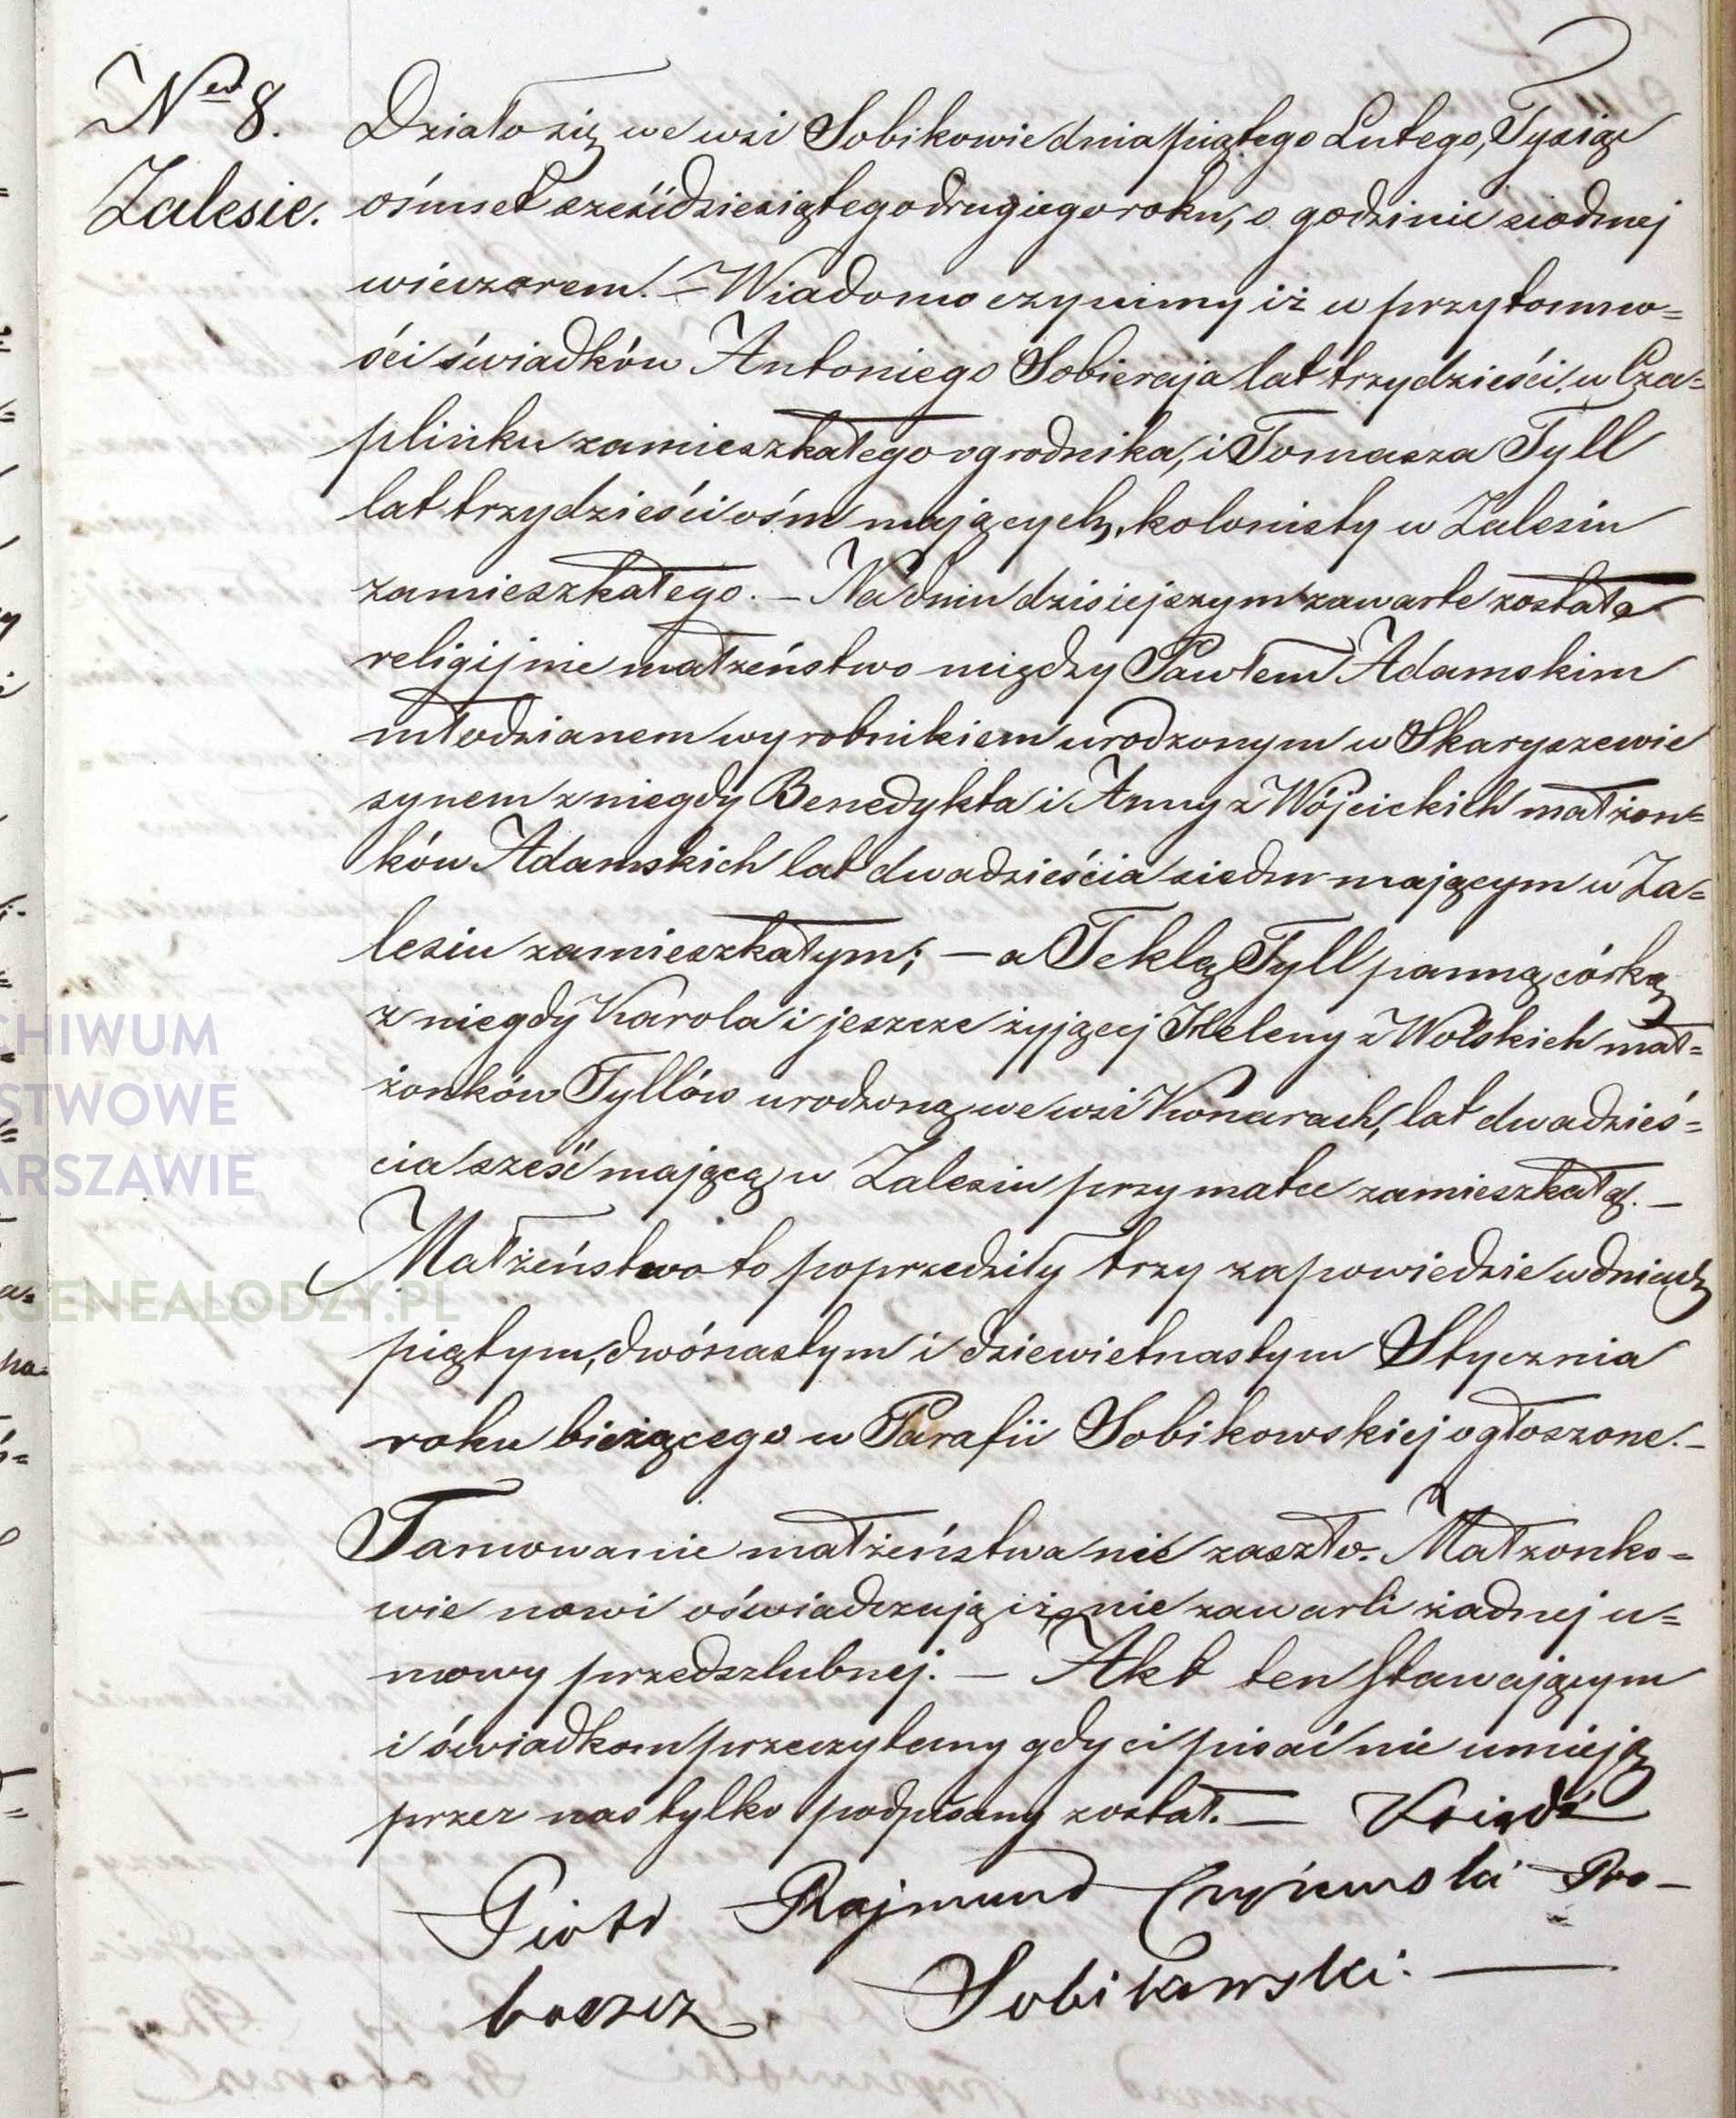 Nro 8.
Zalesie.
Działo się we wsi Sobikowie dnia piątego Lutego, Tysiąc
ośmset sześćdziesiątego drugiego roku, o godzinie siodmej
wieczorem. – Wiadomo czynimy iż w przytomno=
ści świadków Antoniego Sobieraja lat trzydzieści, w Cza=
plinku zamieszkałego ogrodnika, i Tomasza Tyll
lat trzydzieści ośm mających, kolonisty w Zalesiu
zamieszkałego. – Na dniu dzisiejszym zawarte zostało
religijnie małżeństwo między Pawłem Adamskim
młodzianem wyrobnikiem urodzonym w Skaryszewie
synem z niegdy Benedykta i Anny z Wójcickich małżon=
ków Adamskich lat dwadzieścia siedm mającym w Za=
lesiu zamieszkałym; – a Teklą Tyll panną córką
z niegdy Karola i jeszcze żyjącej Heleny z Wolskich mał=
żonków Tyllów urodzoną we wsi Konarach, lat dwadzieś=
cia sześć mającą w Zalesiu przy matce zamieszkałą. –
Małżeństwo to poprzedziły trzy zapowiedzie w dniach
piątym, dwónastym i dziewietnastym Stycznia
roku bieżącego w Parafii Sobikowskiej ogłoszone. –
Tamowanie małżeństwa nie zaszło. Małżonko=
wie nowi oświadczają iż nie zawarli żadnej u=
mowy przedszlubnej. – Akt ten stawającym
i świadkom przeczytany gdy ci pisać nie umieją
przez nas tylko podpisany został. – Ksiądz
Piotr Rajmund Pro-
boszcz Sobikowski. –
CHIWUM
STWOWE
ARSZAWIE
GENEALODZY.PL